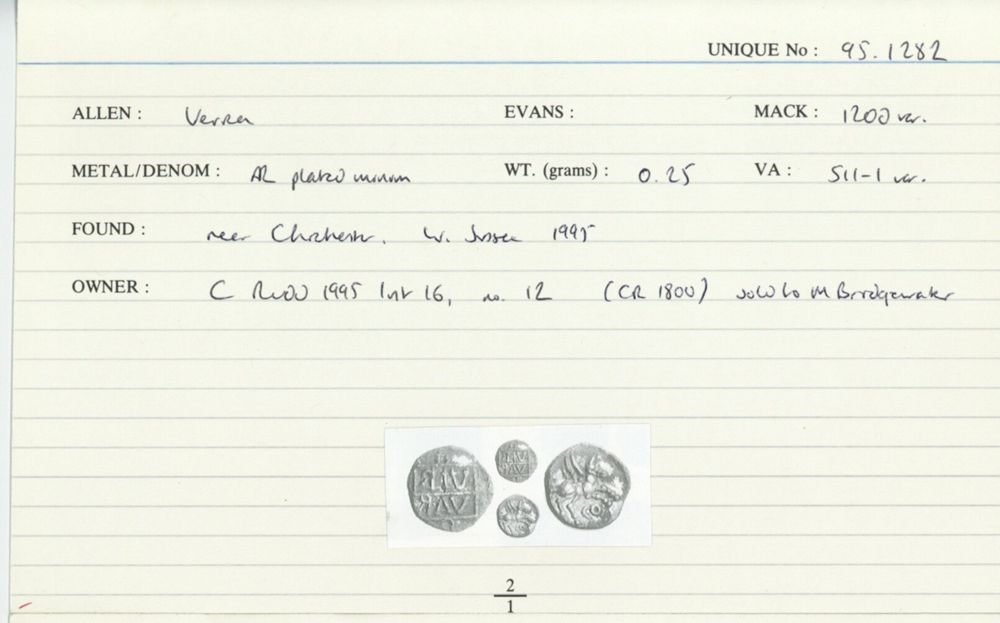 UNIQUE No : 95.1282
ALLEN : Verica EVANS : MACK : 120d var.
METAL/DENOM : AR plated minim WT. (grams) : 0.25 VA : 511-1 var.
FOUND : near Chichester, W. Sussex 1995
OWNER : C Rudd 1995 list 16, no. 12 (CR 1800) sold to M Bridgewater
VIR
VAR
2
1